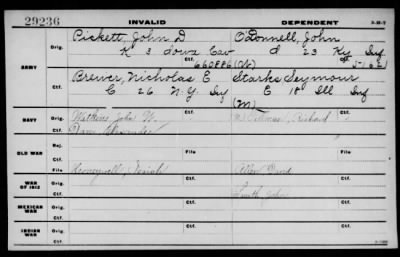 29236 INVALID DEPENDENT 3-357
Orig. Pickett, John D O'Donnell, John
K 3 Iowa Cav d 23 Ky Inf
ARMY 660886
Ctf. Brewer, Nicholas E Starks Seymour
C 26 N.Y. Inf E 18 Ill Inf
(M)
NAVY Orig. Watkins, John W. Richard
Ctf. Alexander
OLD WAR Orig.
File File
Honeywell, Isaiah Allen David
WAR OF 1812 Orig.
Ctf. Smith, John
MEXICAN WAR Orig.
Ctf.
INDIAN WAR Orig.
Ctf.